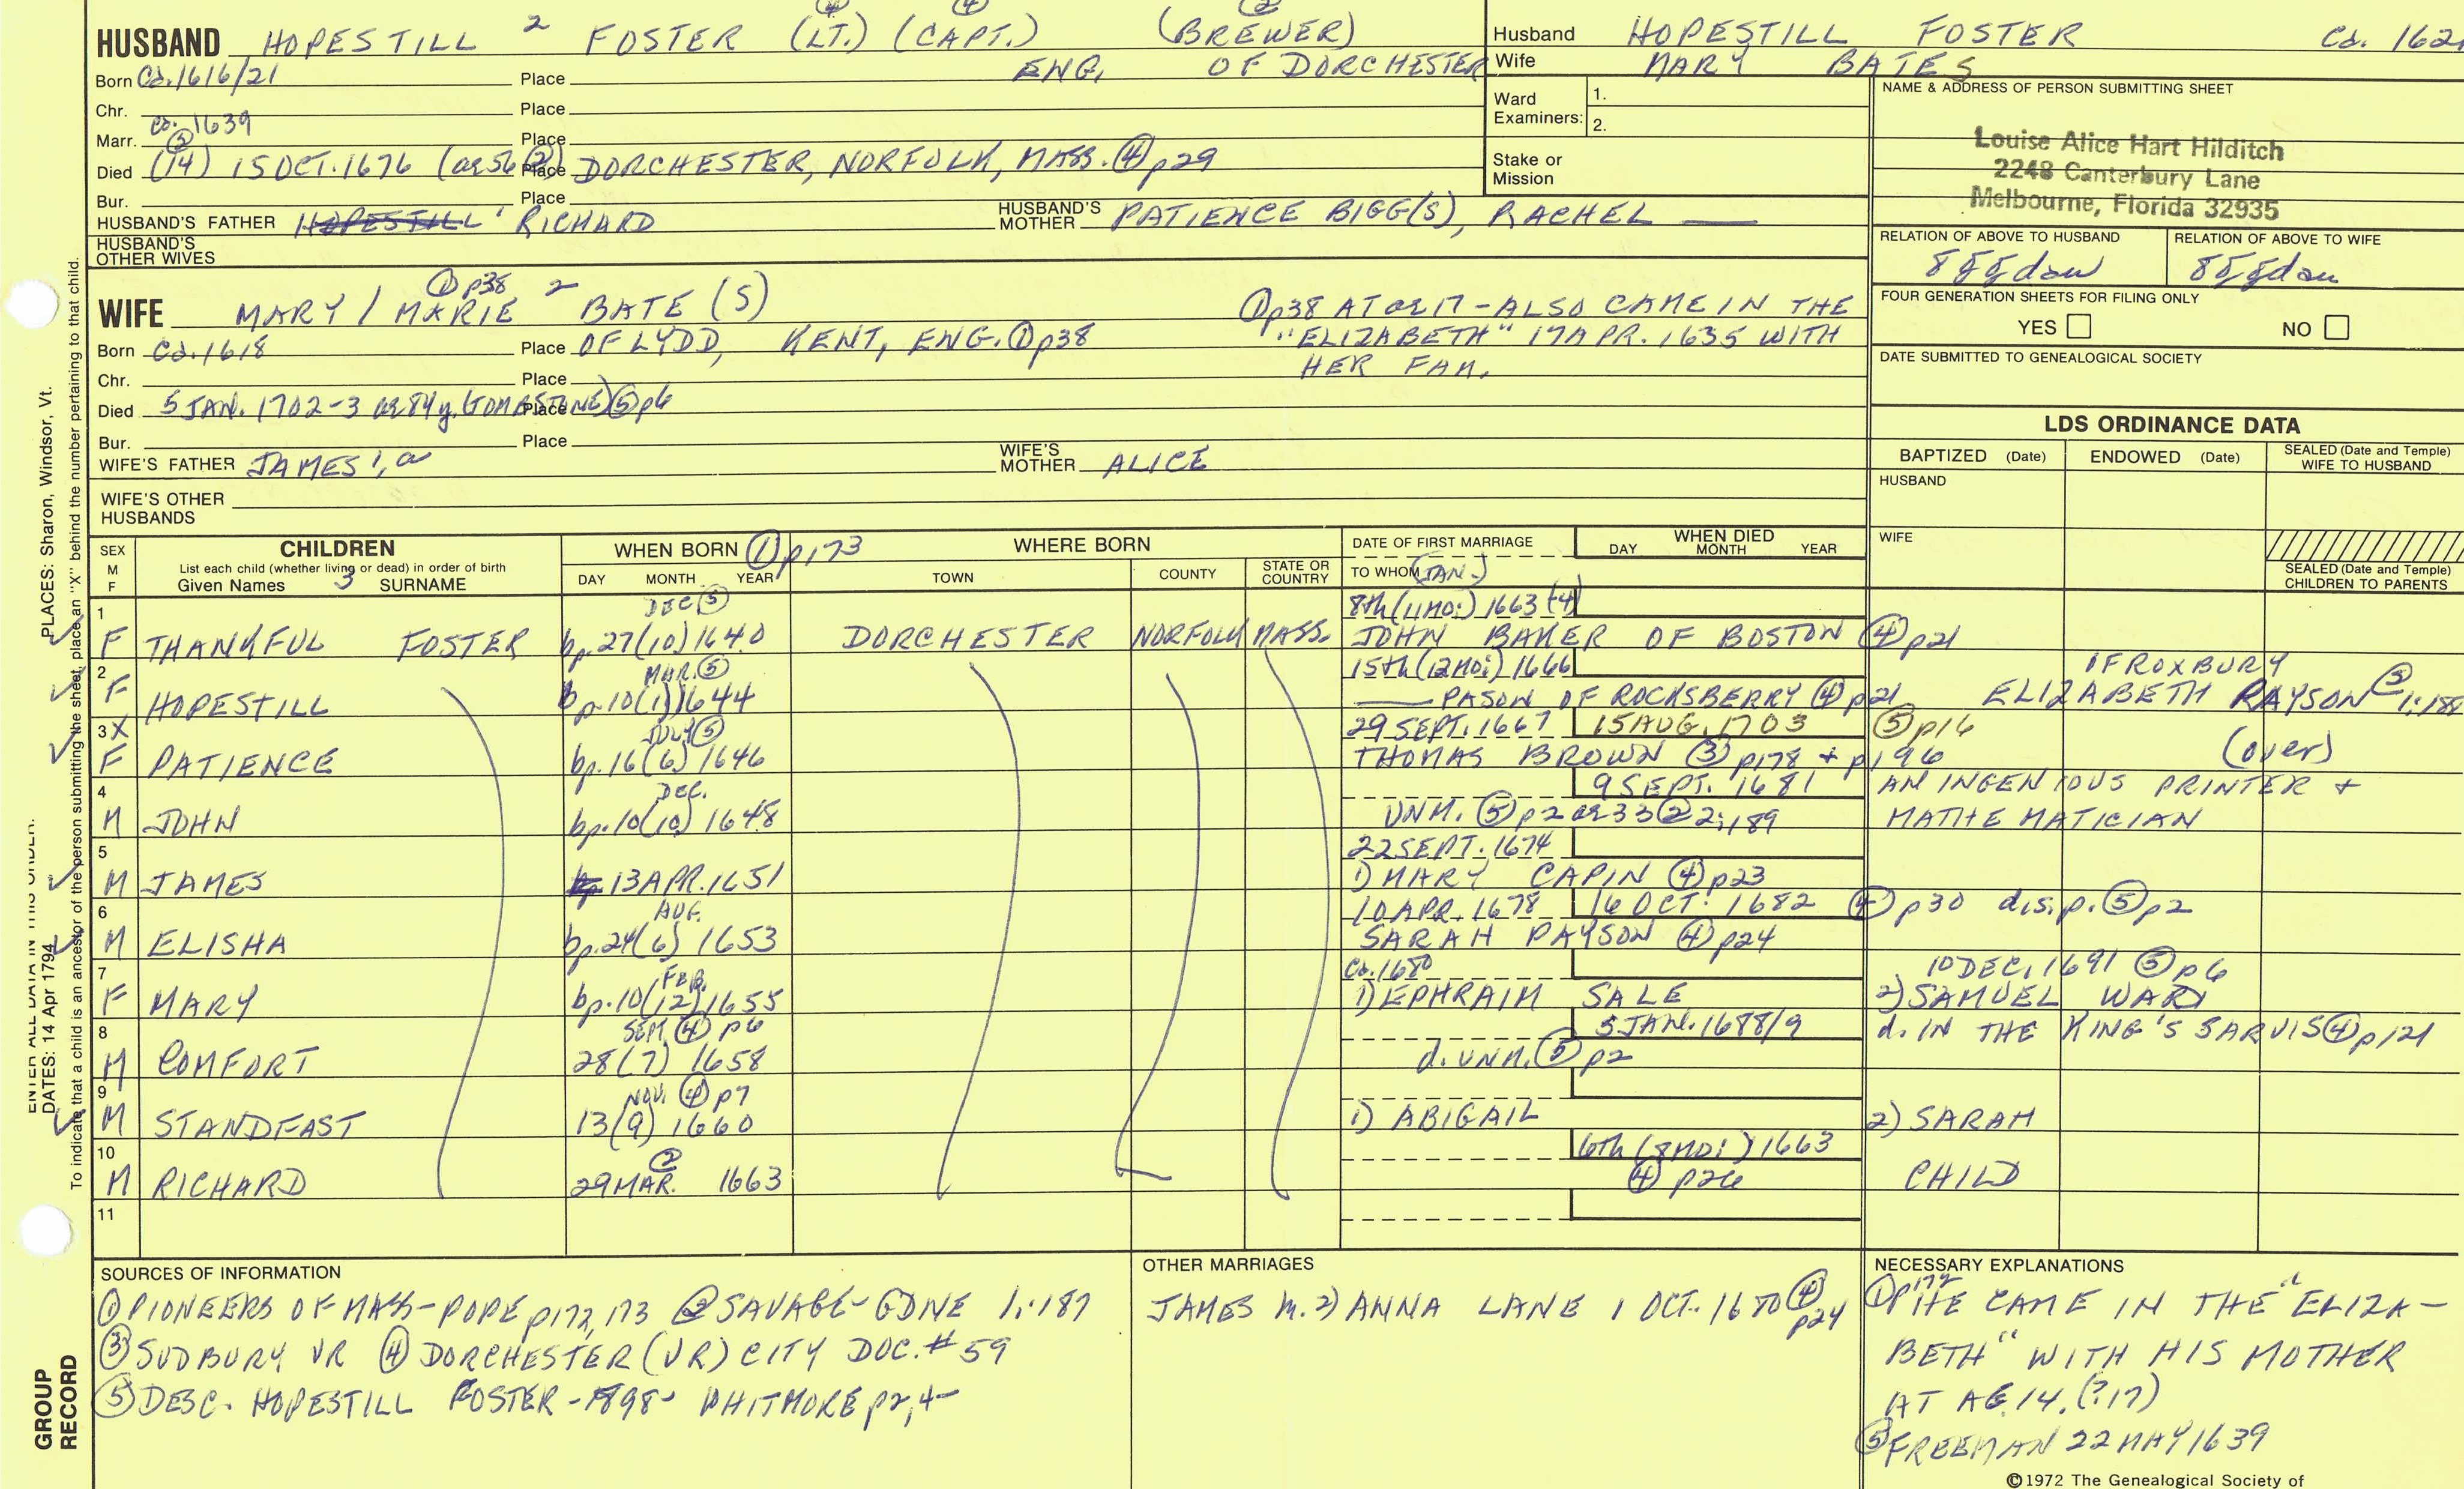 HUSBAND HOPESTILL 2 FOSTER (LT.) (CAPT.) (BREWER)
Born Ca. 1616/21 Place ENG. OF DORCHESTER
Chr. Place
Marr. Ca. 1639 Place
Died (14) 15 OCT. 1676 (ae 56 ②) Place DORCHESTER, NORFOLK, MASS. ④ p29
Bur. Place
HUSBAND'S FATHER RICHARD
HUSBAND'S MOTHER PATIENCE BIGG(S), RACHEL
HUSBAND'S OTHER WIVES
Husband HOPESTILL FOSTER Ca. 162
Wife MARY BATES
Ward Examiners: 1.
2.
Stake or Mission
NAME & ADDRESS OF PERSON SUBMITTING SHEET
Louise Alice Hart Hilditch
2248 Canterbury Lane
Melbourne, Florida 32935
RELATION OF ABOVE TO HUSBAND
RELATION OF ABOVE TO WIFE
FOUR GENERATION SHEETS FOR FILING ONLY
YES NO
DATE SUBMITTED TO GENEALOGICAL SOCIETY
① p38
WIFE MARY / MARIE 2 BATE (S)
Born Ca. 1618 Place OF LYDD, KENT, ENG. ① p38
Chr. Place
Died 5 JAN. 1702-3 ae 84y. (TOMBSTONE) Place ⑤ p6
Bur. Place
① p38 AT ae 17 - ALSO CAME IN THE
"ELIZABETH" 17 APR. 1635 WITH
HER FAM.
WIFE'S FATHER JAMES 1, a
WIFE'S MOTHER ALICE
WIFE'S OTHER HUSBANDS
LDS ORDINANCE DATA
BAPTIZED (Date) ENDOWED (Date) SEALED (Date and Temple) WIFE TO HUSBAND
HUSBAND
WIFE
SEALED (Date and Temple) CHILDREN TO PARENTS
SEX M F
CHILDREN
List each child (whether living or dead) in order of birth
Given Names 3 SURNAME
WHEN BORN ① p173
DAY MONTH YEAR
WHERE BORN
TOWN COUNTY STATE OR COUNTRY
DATE OF FIRST MARRIAGE
TO WHOM (JAN.)
WHEN DIED
DAY MONTH YEAR
1 DEC ⑤ 8th (11 MO:) 1663 (4)
F THANKFUL FOSTER bp. 27 (10) 1640 DORCHESTER NORFOLK MASS. JOHN BAKER OF BOSTON ④ p21
2 MAR. ⑤ 15th (12 MO:) 1666 OF ROXBURY
F HOPESTILL bp. 10 (1) 1644 PASON OF ROCKSBERRY ④ p21 ELIZABETH PAYSON
3 X JULY ⑤ 29 SEPT. 1667 15 AUG. 1703 ⑤ p16
F PATIENCE bp. 16 (6) 1646 THOMAS BROWN ③ p178 + p196 (over)
4 DEC. 9 SEPT. 1681 AN INGENIOUS PRINTER +
M JOHN bp. 10 (10) 1648 UNM. ⑤ p2 ae 33 ② 2:189 MATHEMATICIAN
5 22 SEPT. 1674
M JAMES 13 APR. 1651 1) MARY CAPIN ④ p23
6 AUG. 10 APR. 1678 16 OCT. 1682 ④ p30 d.s.p. ⑤ p2
M ELISHA bp. 24 (6) 1653 SARAH PAYSON ④ p24
7 FEB. Ca. 1680 10 DEC. 1691 ⑤ p6
F MARY bp. 10 (12) 1655 1) EPHRAIM SALE 2) SAMUEL WARD
8 SEPT. ④ p6 5 JAN. 1688/9 d. IN THE KING'S SARVIS ④ p121
M COMFORT 28 (7) 1658 d. UNM. ⑤ p2
9 NOV. ④ p7
M STANDFAST 13 (9) 1660 1) ABIGAIL 2) SARAH
10 ② 6th (8 MO:) 1663
M RICHARD 29 MAR. 1663 ④ p26 CHILD
11
SOURCES OF INFORMATION
① PIONEERS OF MASS - POPE p172, 173 ② SAVAGE - GDNE 1:187
③ SUDBURY VR ④ DORCHESTER (VR) CITY DOC. # 59
⑤ DESC. HOPESTILL FOSTER - 1898 - WHITMORE p2, 4-
OTHER MARRIAGES
JAMES m. 2) ANNA LANE 1 OCT. 1680 ④ p24
NECESSARY EXPLANATIONS
① p172 HE CAME IN THE "ELIZA-
BETH" WITH HIS MOTHER
AT AE. 14. (?17)
⑤ FREEMAN 22 MAY 1639
©1972 The Genealogical Society of
PLACES: Sharon, Windsor, Vt.
ENTER ALL DATA IN THIS ORDER:
DATES: 14 Apr 1794
To indicate that a child is an ancestor of the person submitting the sheet, place an "X" behind the number pertaining to that child.
GROUP RECORD